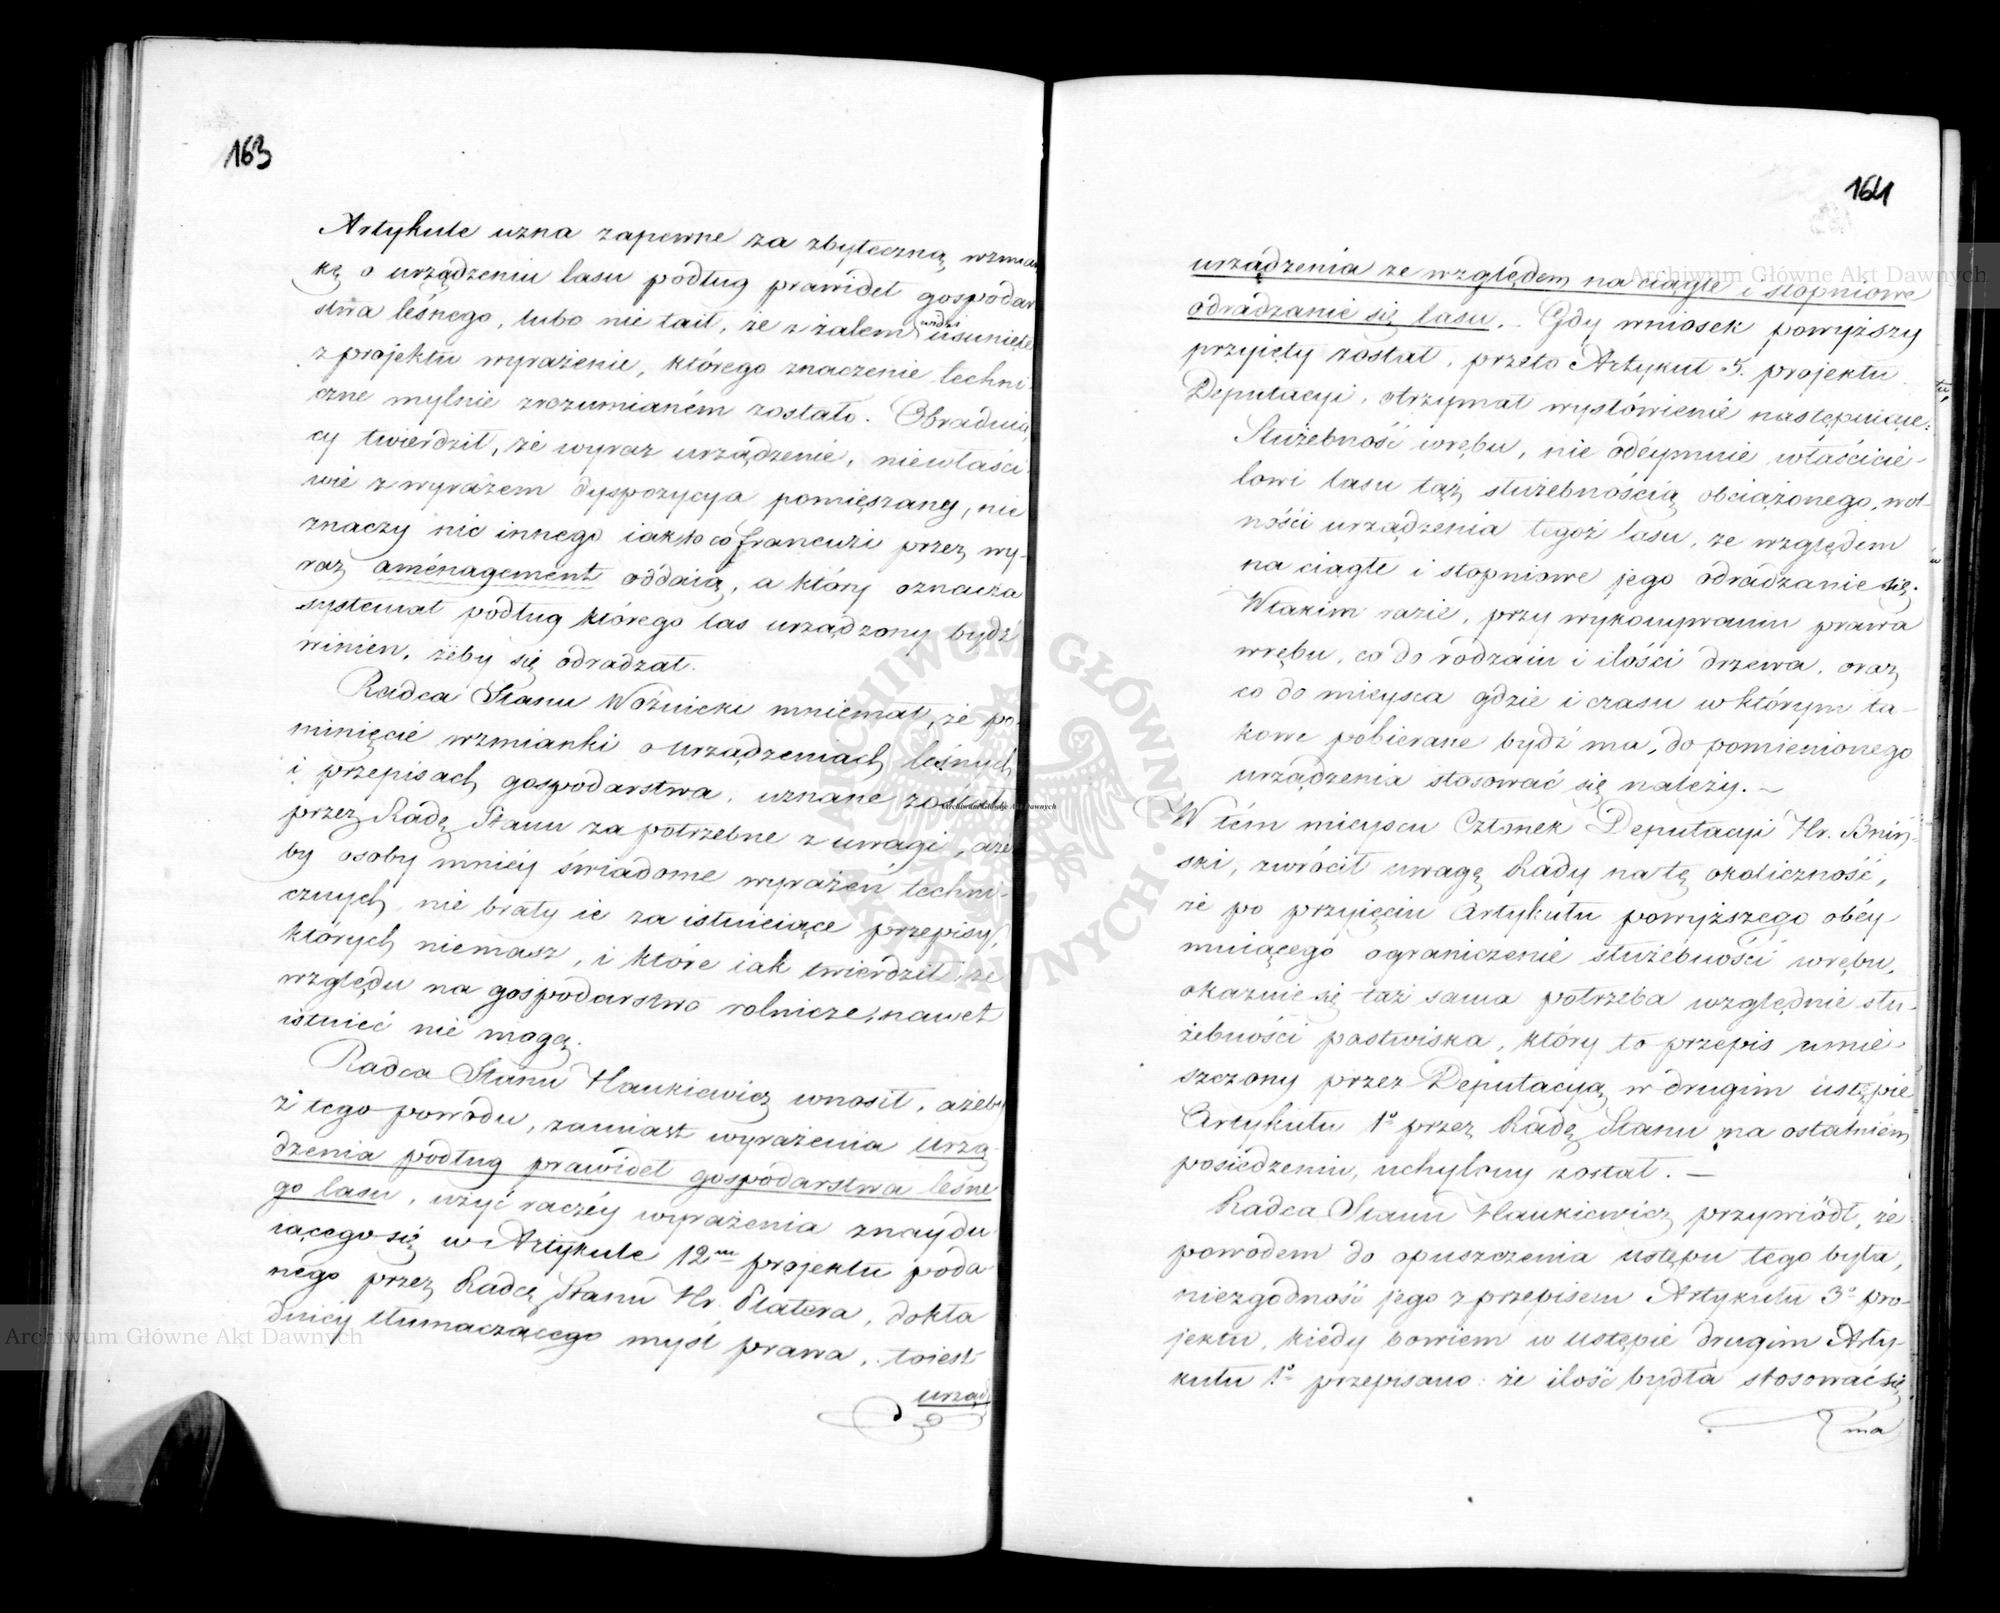 163
Artykule uzna zapewne za zbyteczną wzmian
kę o urządzeniu lasu podług prawideł gospodar
stwa leśnego, lubo nie tait, że z żalem widzi usunięte
z projektu wyrażenie, którego znaczenie techni
czne mylnie zrozumianém zostało. Obraduią
cy twierdził, że wyraz urządzenie, niewłaści
wie z wyrazem dyspozycya pomięszany, nie
znaczy nic innego iak to co francuzi przez wy-
raz aménagement oddaią, a który oznacza
systemat podług którego las urządzony bydź
winien, żeby się odradzał.
Radca Stanu Woźnicki mniemał, że po-
minięcie wzmianki o urządzeniach leśnych
i przepisach gospodarstwa, uznane zostało
przez Radę Stanu za potrzebne z uwagi, aże
by osoby mniéy świadome wyrażeń techni-
cznych nie brały ie za istnieiące przepisy
których niemasz, i które iak twierdził, ze
względu na gospodarstwo rolnicze, nawet
istnieć nie mogą.
Radca Stanu Hankiewicz wnosił, ażeby
z tego powodu, zamiast wyrażenia urzą
dzenia podług prawideł gospodarstwa leśne
go lasu, użyć raczéy wyrażenia znaydu
iącego się w Artykule 12m projektu poda
nego przez Radcę Stanu Hr. Platera, dokła
dniéy tłumaczącego myśl prawa, toiest
urzą
164
urządzenia ze względem na ciągłe i stopniowe
odradzanie się lasu. Gdy wniosek powyższy
przyięty został, przeto Artykuł 5. projektu
Deputacyi, otrzymał wysłówienie następuiące:
Służebność wrębu, nie odeymuie właścicie-
lowi lasu taż służebnością obciążonego, wol-
ności urządzenia tegoż lasu, ze względem
na ciągłe i stopniowe jego odradzanie się.
W takim razie, przy wykonywaniu prawa
wrębu, co do rodzaiu i ilości drzewa, oraz
co do mieysca gdzie i czasu w którym ta-
kowe pobierane bydź ma, do pomienionego
urządzenia stosować się należy. –
W tém mieyscu Członek Deputacyi Hr. Bniń-
ski, zwrócił uwagę Rady na tę okoliczność,
że po przyięciu Artykułu powyższego obéy
muiącego ograniczenie służebności wrębu,
okazuie się taż sama potrzeba względnie słu-
żebności pastwiska, który to przepis umie-
szczony przez Deputacyą w drugim ustępie
Artykułu 1o przez Radę Stanu na ostatniém
posiedzeniu, uchylony został. –
Radca Stanu Hankiewicz przywiódł, że
powodem do opuszczenia ustępu tego była,
niezgodność jego z przepisem Artykułu 3o pro-
jektu, kiedy bowiem w ustępie drugim Arty-
kułu 1o przepisano: że ilość bydła stosować się
ma
Archiwum Główne Akt Dawnych
Archiwum Główne Akt Dawnych
Archiwum Główne Akt Dawnych
ARCHIWUM GŁÓWNE AKT DAWNYCH